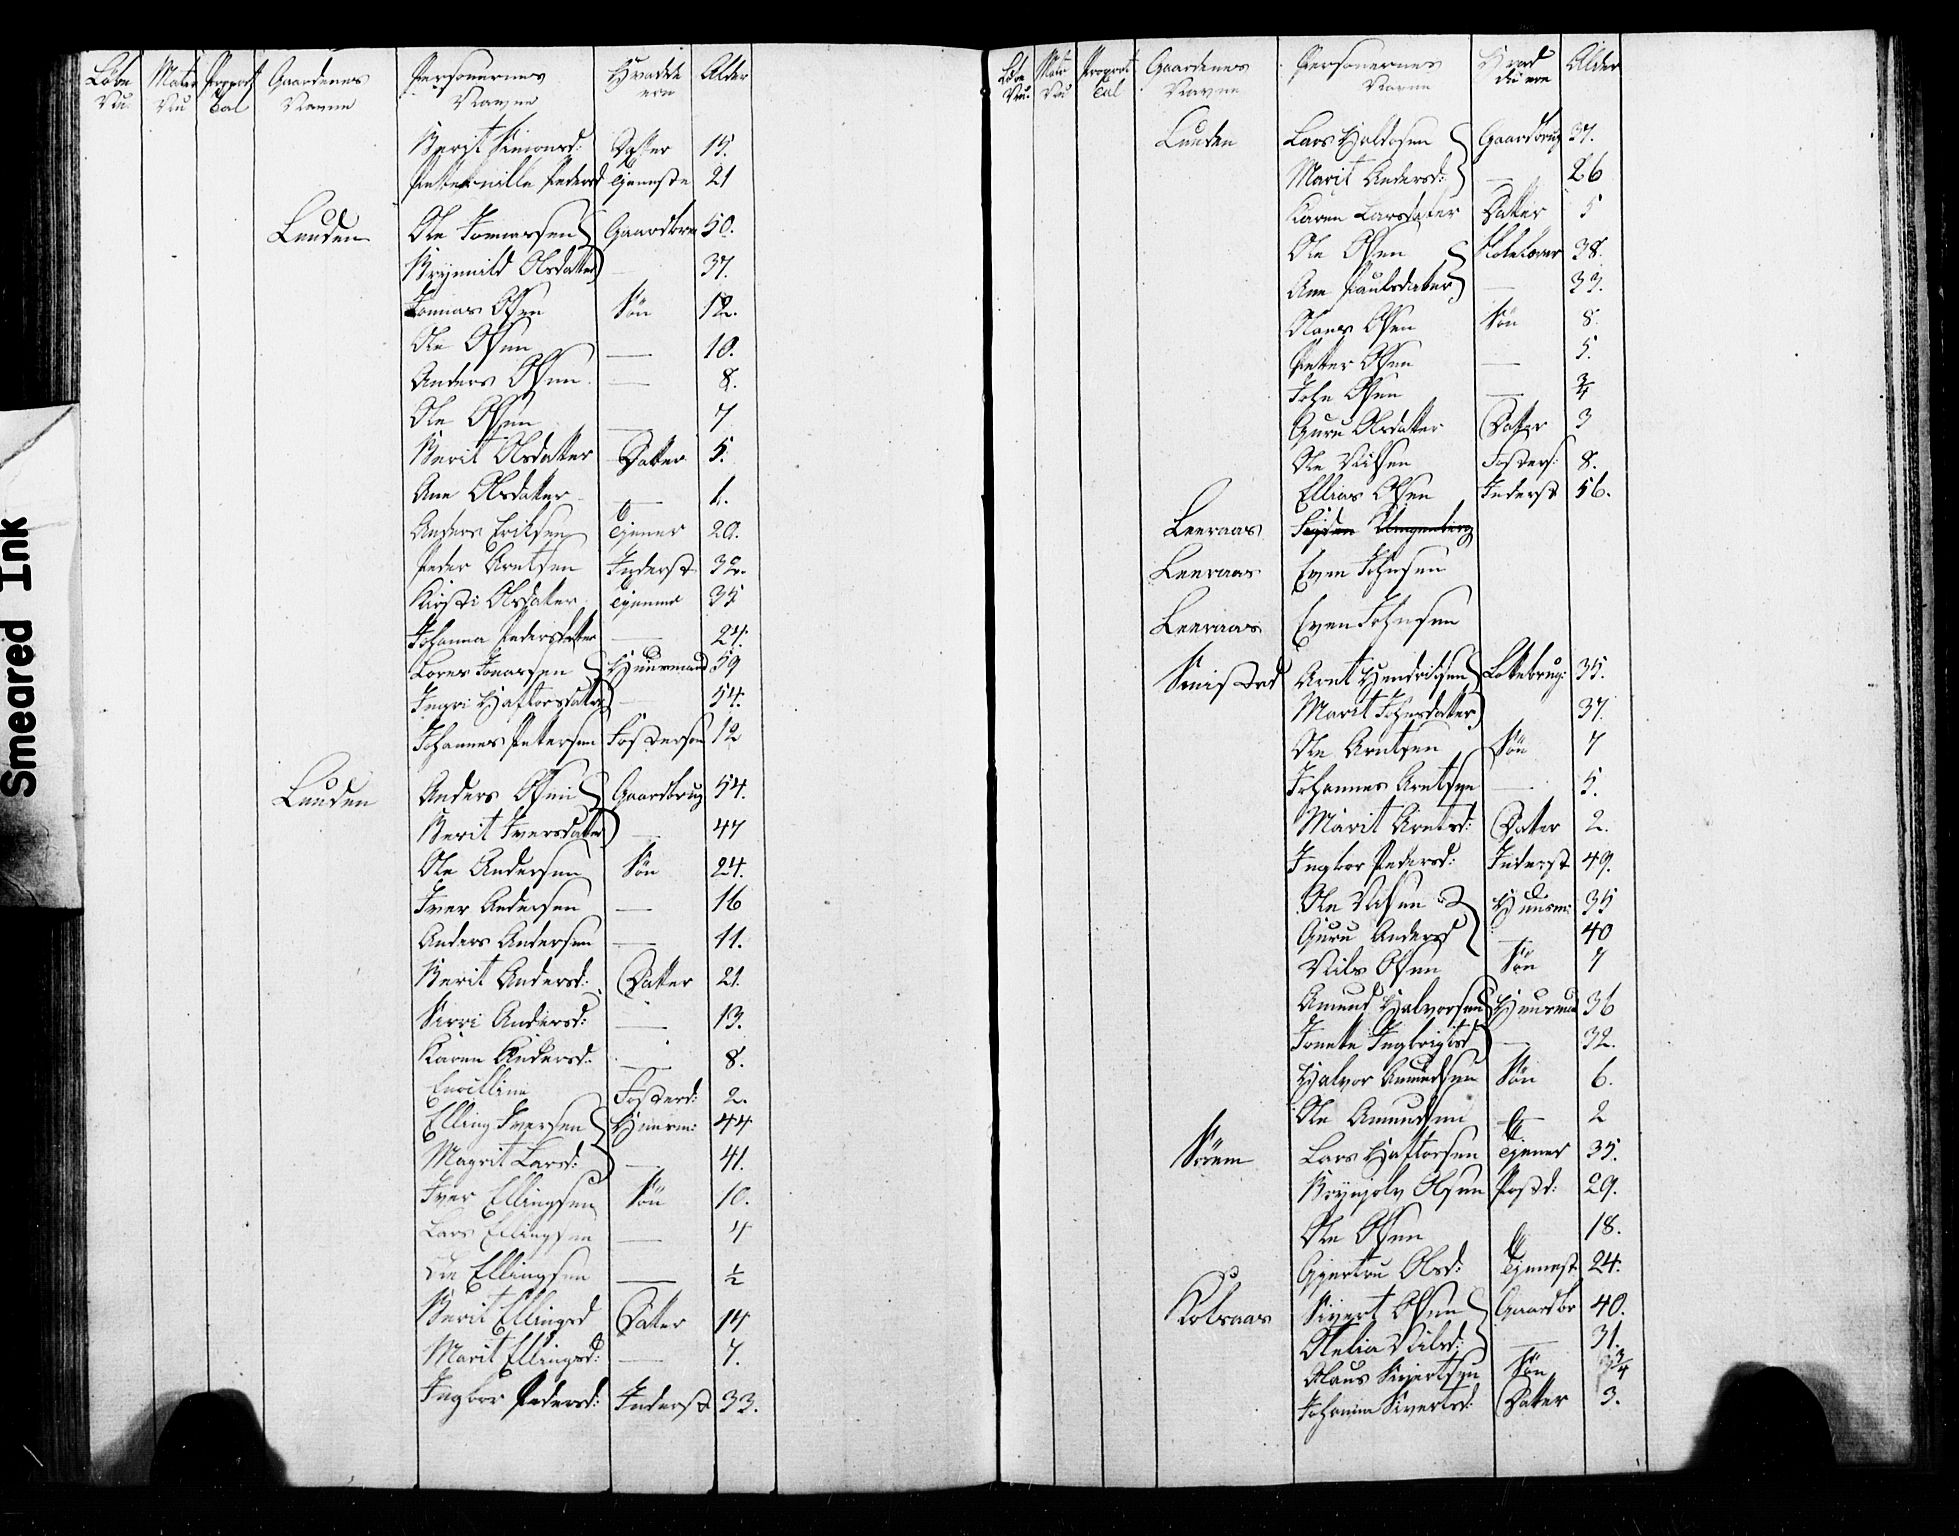 Smeared Ink
Løbe Nu. Matr Nu Proport Tal Gaardenes Navne Personernes Navne Hvad de ere Alder
Berit Simonsd: Datter 15.
Peternille Pedersd Tjeneste 21
Lunden Ole Jonnassen Gaardbru 50.
Brynnild Olsdatter — 37.
Jonnas Olsen Sön 12.
Ole Olsen — 10.
Anders Olsen — 8.
Ole Olsen — 7
Berit Olsdatter Datter 5.
Ane Olsdatter — 1.
Anders Eriksen Tjener 20.
Peder Arntsen Inderst 32.
Kirsti Olsdatter Tjenner 35
Johanna Pedersdatter — 24.
Lornts Jonassen Huusmand 59
Ingri Haftorsdatter — 54.
Johannes Petersen Fosterson 12
Lunden Anders Olsen Gaardbrug 54.
Berit Iversdatter — 47
Ole Andersen Sön 24.
Iver Andersen — 16
Anders Andersen — 11.
Berit Andersd: Datter 21.
Sirri Andersd: — 13.
Karen Andersd: — 8.
Fosterd: 2.
Elling Iversen Huusm: 44
Magrit Larsd: — 41.
Iver Ellingsen Sön 10.
Lars Ellingsen — 4
Ole Ellingsen — ½
Berit Ellingsd Datter 14
Marit Ellingsd: — 7.
Ingbor Pedersd: Inderst 33.
Løbe Nu. Matr Nu Proport Tal Gaardenes Navne Personernes Navne Hvad de ere Alder
Lunden Lars Haldosen Gaardbrug 37.
Marit Andersd: — 26
Karen Larsdatter Datter 5
Ole Olsen Skolelærer 38.
Ane Paulsdatter — 33.
Olaus Olsen Sön 8.
Petter Olsen — 5.
John Olsen — ¾
Guru Olsdatter Datter 3
Ole Nilsen Fosters: 8.
Ellias Olsen Inderst 56.
Leeraas
Leeraas Even Johnsen
Leeraas Even Johnsen
Arnt Hendriksen Lokebrug: 35.
Marit Johnsdatter 37.
Ole Arntsen Sön 7
Johannes Arntsen — 5.
Marit Arntsd: Datter 2.
Ingbor Pedersd: Inderst 49.
Ole Nilsen Huusm: 35
Guru Andersd — 40
Nils Olsen Sön 7
Amund Halvorsen Huusman 36
Jonetta Ingbrigtsd — 32.
Halvor Amundsen Sön 6.
Ole Amundsen — 2
Sörem Lars Haftorsen Tjener 35.
Brynjolv Olsen Postd: 29.
Ole Olsen 18.
Gjertru Olsd: Tjennest 24.
Kolsaas Sivert Olsen Gaardbr 40.
Olelia Nilsd: — 31.
Olaus Sivertsen Sön ¾
Johanna Sivertsd: Datter 3.